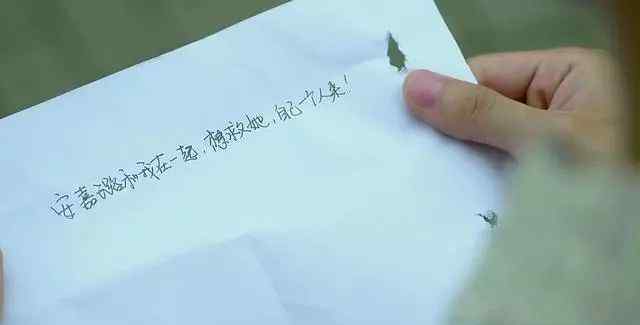 安嘉璐和我在一起，想救她，自己一个人来！